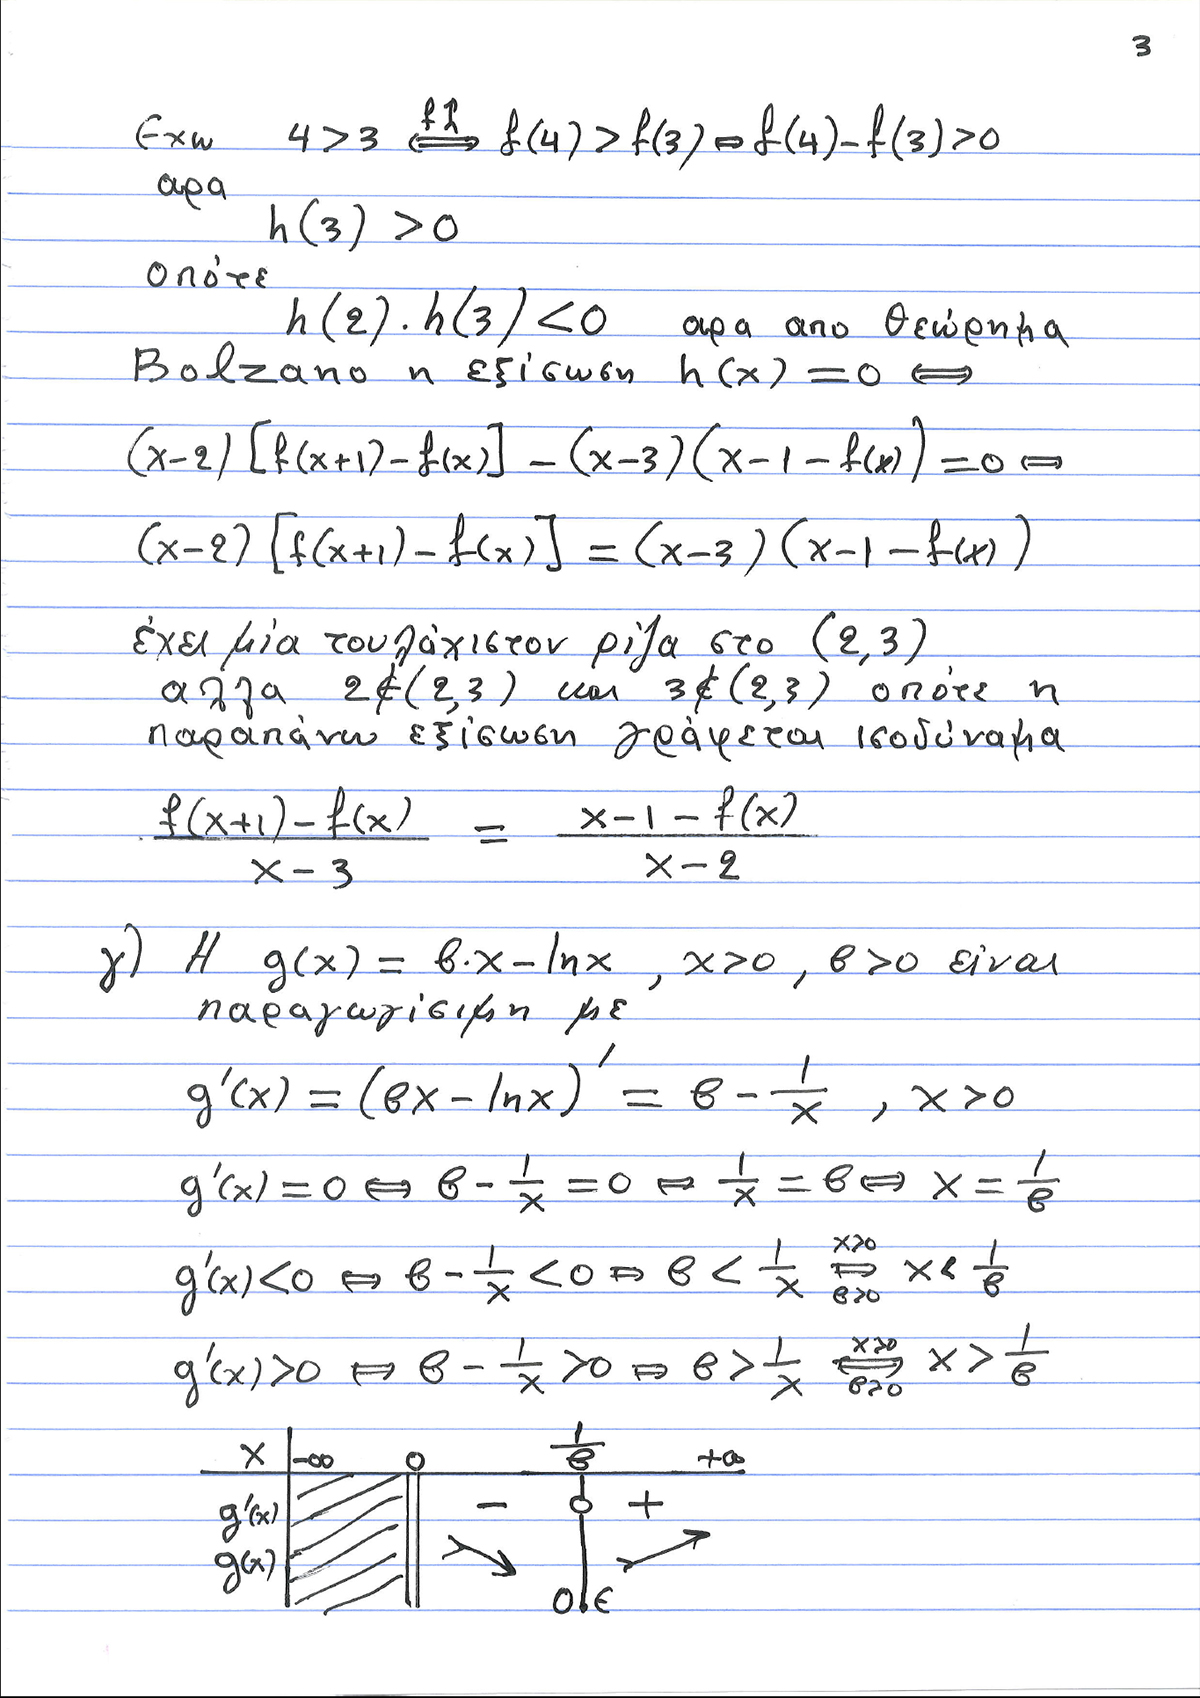 3
Εχω 4>3 ⇔ f↑ f(4)>f(3) ⇔ f(4)-f(3)>0
αρα
h(3) >0
οπότε
h(2)·h(3)<0 αρα απο θεώρημα
Bolzano η εξίσωση h(x)=0 ⇔
(x-2)[f(x+1)-f(x)] - (x-3)(x-1-f(x))=0 ⇔
(x-2)[f(x+1)-f(x)] = (x-3)(x-1-f(x))
έχει μία τουλάχιστον ρίζα στο (2,3)
αλλα 2∉(2,3) και 3∉(2,3) οπότε η
παραπάνω εξίσωση γράφεται ισοδύναμα
f(x+1)-f(x) / x-3 = x-1-f(x) / x-2
γ) Η g(x)= β·x-lnx, x>0, β>0 είναι
παραγωγίσιμη με
g'(x) = (βx-lnx)' = β - 1/x , x>0
g'(x)=0 ⇔ β - 1/x = 0 ⇔ 1/x = β ⇔ x = 1/β
g'(x)<0 ⇔ β - 1/x <0 ⇔ β < 1/x ⇔ x>0 β>0 x < 1/β
g'(x)>0 ⇔ β - 1/x >0 ⇔ β > 1/x ⇔ x>0 β>0 x > 1/β
x -∞ 0 1/β +∞
g'(x) - 0 +
g(x) ↘ ↗
Ο.Ε